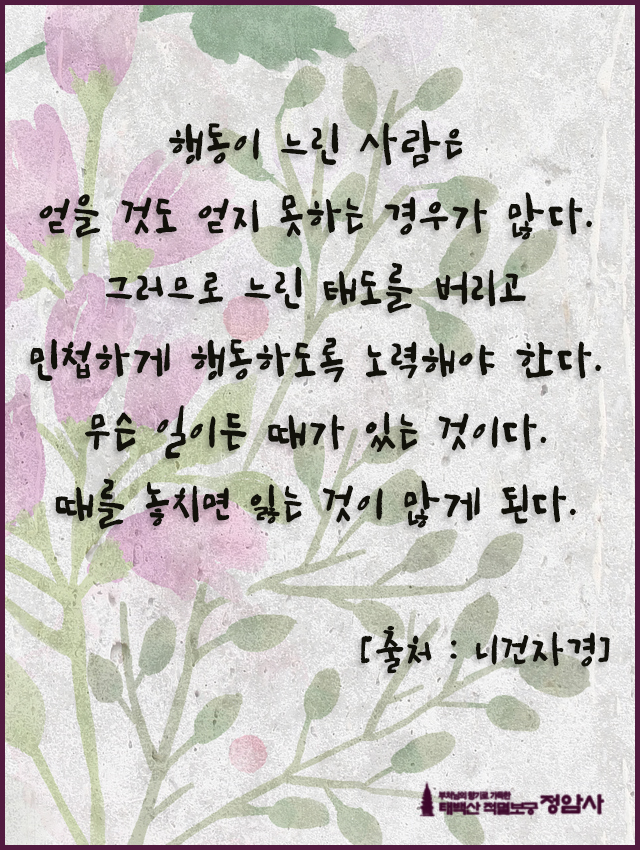 행동이 느린 사람은
얻을 것도 얻지 못하는 경우가 많다.
그러므로 느린 태도를 버리고
민첩하게 행동하도록 노력해야 한다.
무슨 일이든 때가 있는 것이다.
때를 놓치면 잃는 것이 많게 된다.
[출처 : 니건자경]
부처님의 향기로 가득한
태백산 적멸보궁 정암사